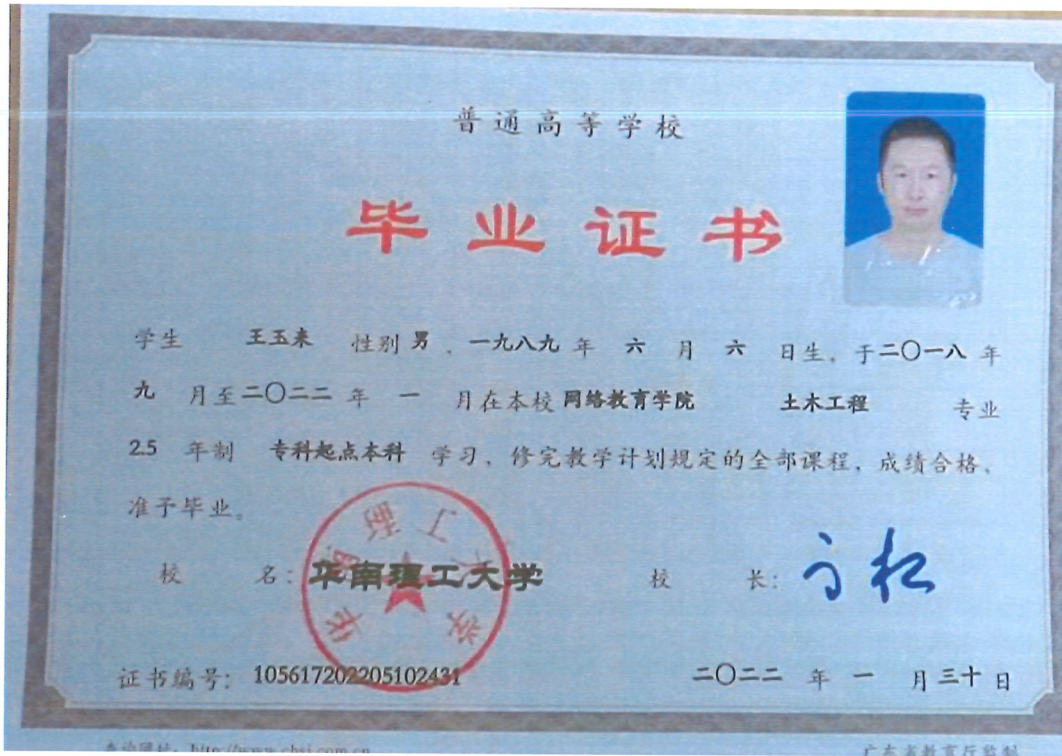 普通高等学校
毕业证书
学生 王玉来 性别 男 ，一九八九 年 六 月 六 日生，于 二〇一八 年
九 月至 二〇二二 年 一 月在本校 网络教育学院 土木工程 专业
2.5 年制 专科起点本科 学习，修完教学计划规定的全部课程，成绩合格，
准予毕业。
校 名：华南理工大学 校 长：
华南理工大学
证书编号：105617202205102431 二〇二二 年 一 月 三十 日
查询网址：http://www.chsi.com.cn 广东省教育厅监制